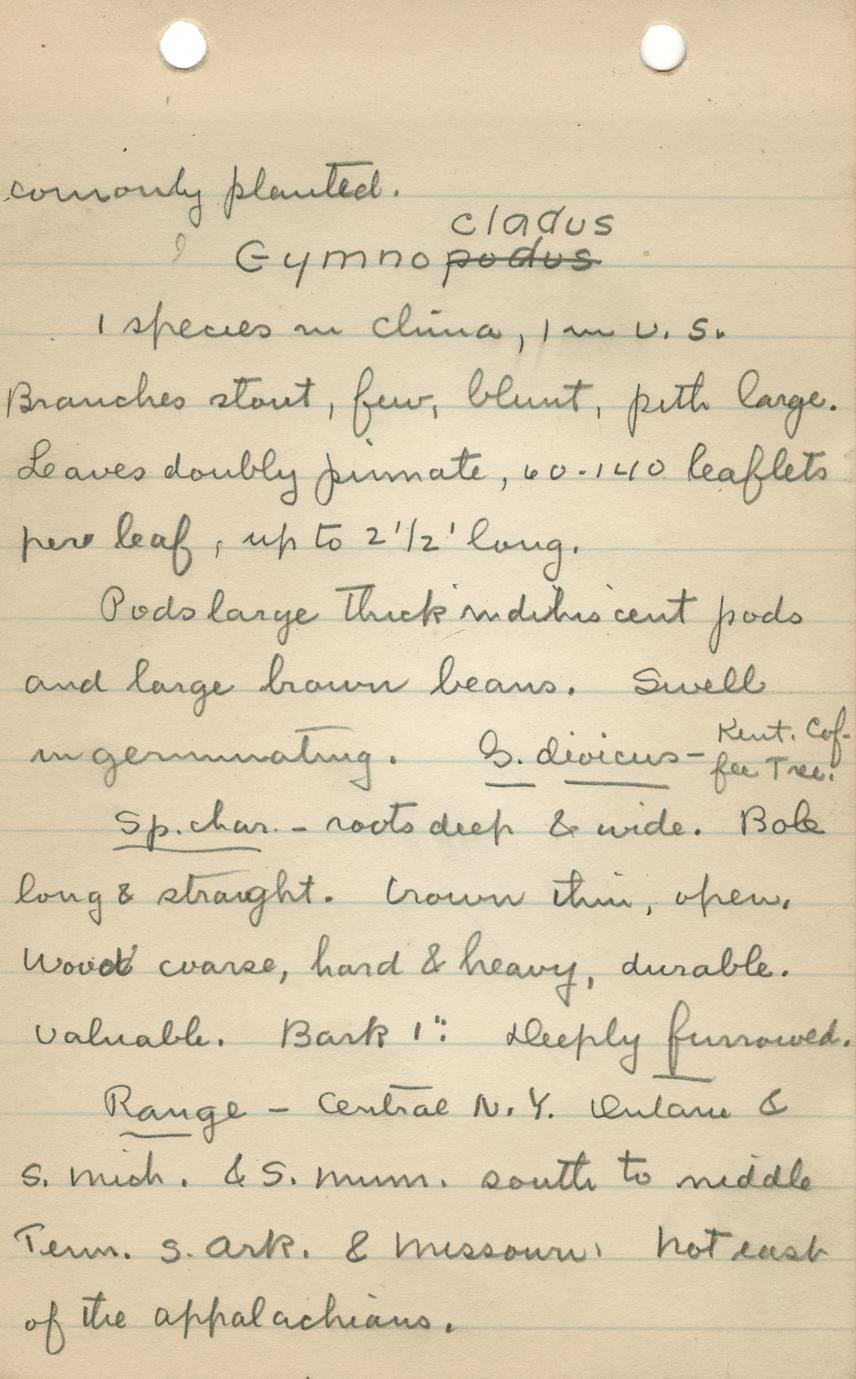 commonly planted.
cladus
Gymnopodus
1 species in China, 1 in U.S.
Branches stout, few, blunt, pith large.
Leaves doubly pinnate, 60-140 leaflets
per leaf, up to 2 1/2' long.
Pods large thick indehiscent pods
and large brown beans. Swell
in germinating. G. divicus - Kent. Cof-
fee Tree.
Sp. char. - roots deep & wide. Bole
long & straight. Crown thin, open.
Wood coarse, hard & heavy, durable.
Valuable. Bark 1". Deeply furrowed.
Range - Central N.Y. Ontario &
S. Mich. & S. Minn. south to middle
Tenn. S. Ark. & Missouri. Not east
of the appalachians.